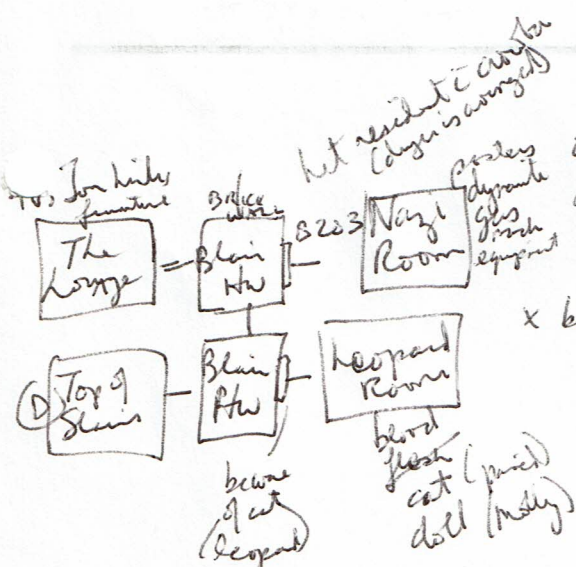 hit resident c crowbar
(danger is averaged)
TV, Tom Links
furniture
The
Lounge
Brick
wall
Blair
HW
B203
Nazi
Room
posters
dynamite
gas
mask
equipment
x b
D
Top of
Stairs
Blair
HW
Leopard
Room
beware
of cat
(leopard)
blood
flesh
cat (
doll (Molly)